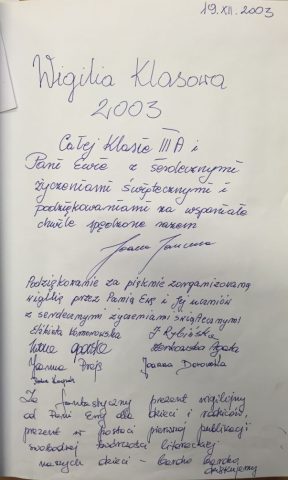 19.XII.2003
Wigilia Klasowa
2003
Całej Klasie III A i
Pani Ewie z serdecznymi
życzeniami świątecznymi i
podziękowaniami za wspaniałe
chwile spędzone razem
Joanna
Podziękowanie za pięknie zorganizowaną
wigilię przez Panią Ewę i Jej uczniów
z serdecznymi życzeniami świątecznymi
Elżbieta Komorowska J. Rybińska
Agata
Joanna Preis Joanna Dorowska
Za fantastyczny prezent wigilijny
od Pani Ewy dla dzieci i rodziców,
prezent w postaci pierwszej publikacji
swobodnej twórczości literackiej
naszych dzieci - bardzo bardzo
dziękujemy